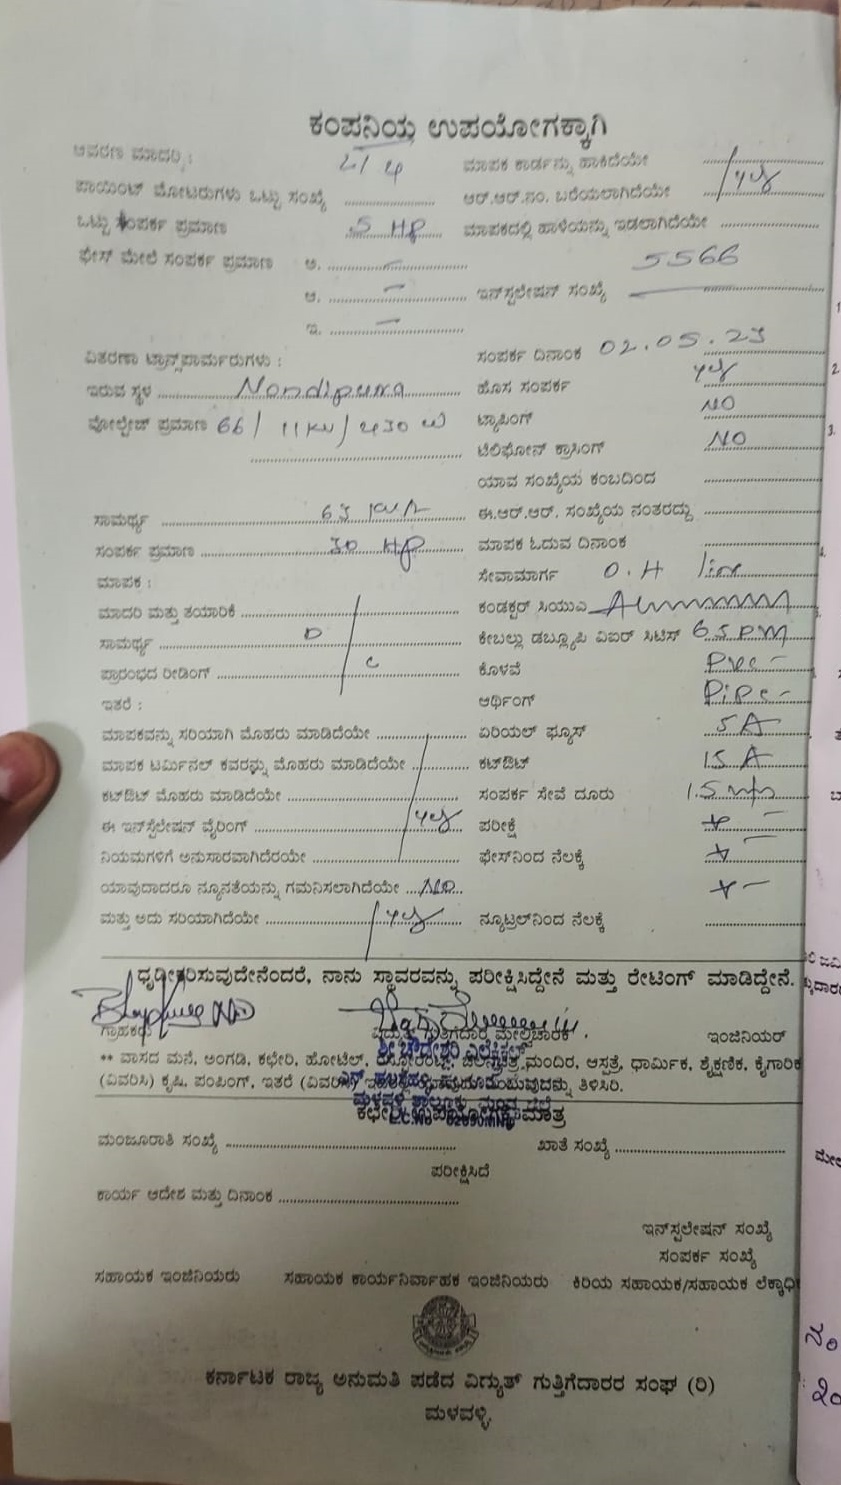 ಕಂಪನಿಯ ಉಪಯೋಗಕ್ಕಾಗಿ
ಆವರಣ ಮಾದರಿ : LI 4 ಮಾಪಕ ಕಾರ್ಡನ್ನು ಹಾಕಿದೆಯೇ
ಪಾಯಿಂಟ್ ಮೋಟರುಗಳು ಒಟ್ಟು ಸಂಖ್ಯೆ ಆರ್.ಆರ್.ನಂ. ಬರೆಯಲಾಗಿದೆಯೇ yes
ಒಟ್ಟು ಸಂಪರ್ಕ ಪ್ರಮಾಣ 5 HP ಮಾಪಕದಲ್ಲಿ ಹಾಳೆಯನ್ನು ಇಡಲಾಗಿದೆಯೇ
ಫೇಸ್ ಮೇಲೆ ಸಂಪರ್ಕ ಪ್ರಮಾಣ ಅ. – 5566
ಆ. – ಇನ್‌ಸ್ಟಲೇಷನ್ ಸಂಖ್ಯೆ
ಇ. –
ವಿತರಣಾ ಟ್ರಾನ್ಸ್‌ಫಾರ್ಮರುಗಳು : ಸಂಪರ್ಕ ದಿನಾಂಕ 02.05.23
ಇರುವ ಸ್ಥಳ Nandipura ಹೊಸ ಸಂಪರ್ಕ yes
ವೋಲ್ಟೇಜ್ ಪ್ರಮಾಣ 66/11KV/430 ಟ್ಯಾಪಿಂಗ್ NO
ಟೆಲಿಫೋನ್ ಕ್ರಾಸಿಂಗ್ NO
ಯಾವ ಸಂಖ್ಯೆಯ ಕಂಬದಿಂದ
ಸಾಮರ್ಥ್ಯ 63 KVA ಈ.ಆರ್.ಆರ್. ಸಂಖ್ಯೆಯ ನಂತರದ್ದು
ಸಂಪರ್ಕ ಪ್ರಮಾಣ 30 HP ಮಾಪಕ ಓದುವ ದಿನಾಂಕ
ಮಾಪಕ : ಸೇವಾಮಾರ್ಗ O.H line
ಮಾದರಿ ಮತ್ತು ತಯಾರಿಕೆ ಕಂಡಕ್ಟರ್ ಸಿಯುಎ
ಸಾಮರ್ಥ್ಯ D ಕೇಬಲ್ಲು ಡಬ್ಲ್ಯೂಪಿ ವಿಐಆರ್ ಸಿಟಿಸ್
ಪ್ರಾರಂಭದ ರೀಡಿಂಗ್ C ಕೊಳವೆ PVC –
ಇತರೆ : ಆರ್ಥಿಂಗ್ Pipe –
ಮಾಪಕವನ್ನು ಸರಿಯಾಗಿ ಮೊಹರು ಮಾಡಿದೆಯೇ ಏರಿಯಲ್ ಫ್ಯೂಸ್ 5A
ಮಾಪಕ ಟರ್ಮಿನಲ್ ಕವರನ್ನು ಮೊಹರು ಮಾಡಿದೆಯೇ ಕಟ್‌ಔಟ್ 15 A
ಕಟ್‌ಔಟ್ ಮೊಹರು ಮಾಡಿದೆಯೇ ಸಂಪರ್ಕ ಸೇವೆ ದೂರು 1.5
ಈ ಇನ್‌ಸ್ಟಲೇಷನ್ ವೈರಿಂಗ್ yes ಪರೀಕ್ಷೆ + –
ನಿಯಮಗಳಿಗೆ ಅನುಸಾರವಾಗಿದೆರಯೇ ಫೇಸ್‌ನಿಂದ ನೆಲಕ್ಕೆ + –
ಯಾವುದಾದರೂ ನ್ಯೂನತೆಯನ್ನು ಗಮನಿಸಲಾಗಿದೆಯೇ NO + –
ಮತ್ತು ಅದು ಸರಿಯಾಗಿದೆಯೇ yes ನ್ಯೂಟ್ರಲ್‌ನಿಂದ ನೆಲಕ್ಕೆ
ಧೃಢೀಕರಿಸುವುದೇನೆಂದರೆ, ನಾನು ಸ್ಥಾವರವನ್ನು ಪರೀಕ್ಷಿಸಿದ್ದೇನೆ ಮತ್ತು ರೇಟಿಂಗ್ ಮಾಡಿದ್ದೇನೆ.
ಗ್ರಾಹಕರು ವಿದ್ಯುತ್ ಗುತ್ತಿಗೆದಾರ ಮೇಲ್ವಿಚಾರಕ ಇಂಜಿನಿಯರ್
ಶ್ರೀ ಚೌಡೇಶ್ವರಿ ಎಲೆಕ್ಟ್ರಿಕಲ್ಸ್
** ವಾಸದ ಮನೆ, ಅಂಗಡಿ, ಕಛೇರಿ, ಹೋಟೆಲ್, ಮಂದಿರ, ಆಸ್ಪತ್ರೆ, ಧಾರ್ಮಿಕ, ಶೈಕ್ಷಣಿಕ, ಕೈಗಾರಿಕ
(ವಿವರಿಸಿ) ಕೃಷಿ, ಪಂಪಿಂಗ್, ಇತರೆ (ವಿವರಿಸಿ) ತಿಳಿಸಿರಿ.
ಕಛೇರಿ ಉಪಯೋಗಕ್ಕೆ ಮಾತ್ರ
ಮಂಜೂರಾತಿ ಸಂಖ್ಯೆ ಖಾತೆ ಸಂಖ್ಯೆ
ಪರೀಕ್ಷಿಸಿದೆ
ಕಾರ್ಯ ಆದೇಶ ಮತ್ತು ದಿನಾಂಕ
ಇನ್‌ಸ್ಟಲೇಷನ್ ಸಂಖ್ಯೆ
ಸಂಪರ್ಕ ಸಂಖ್ಯೆ
ಸಹಾಯಕ ಇಂಜಿನಿಯರು ಸಹಾಯಕ ಕಾರ್ಯನಿರ್ವಾಹಕ ಇಂಜಿನಿಯರು ಕಿರಿಯ ಸಹಾಯಕ/ಸಹಾಯಕ ಲೆಕ್ಕಾಧಿ
ಕರ್ನಾಟಕ ರಾಜ್ಯ ಅನುಮತಿ ಪಡೆದ ವಿದ್ಯುತ್ ಗುತ್ತಿಗೆದಾರರ ಸಂಘ (ರಿ)
ಮಳವಳ್ಳಿ.